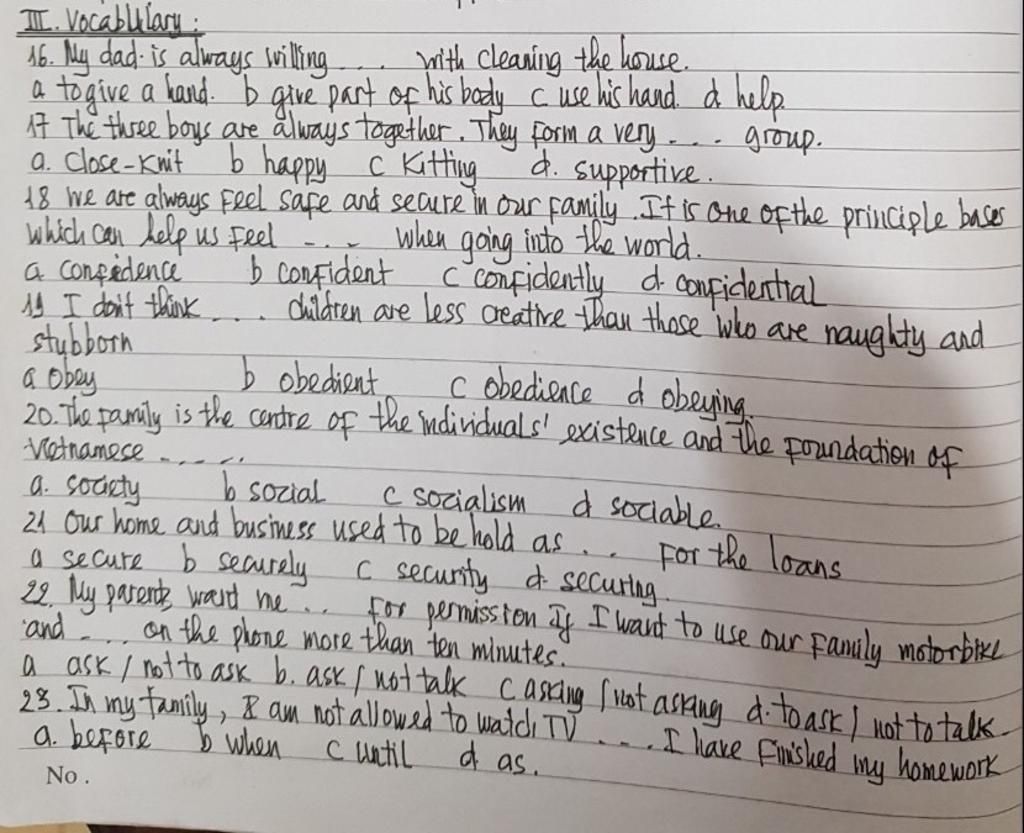 III. Vocablulary:
16. My dad is always willing .... with cleaning the house.
a to give a hand. b give part of his body c use his hand. d help.
17 The three boys are always together. They form a very .... group.
a. Close-knit b happy c Kitting d. supportive.
18 We are always feel safe and secure in our family. It is one of the principle bases
which can help us feel .... when going into the world.
a confidence b confident c confidently d. confidential
19 I don't think .... children are less creative than those who are naughty and
stubborn
a obey b obedient c obedience d obeying.
20. The family is the centre of the individuals' existence and the foundation of
Vietnamese ......
a. society b social c socialism d sociable.
21 Our home and business used to be hold as ... for the loans
a secure b securely c security d. securing.
22. My parents want me ... for permission if I want to use our family motorbike
and .... on the phone more than ten minutes.
a ask / not to ask b. ask / not talk c asking / not asking d. to ask / not to talk.
23. In my family, I am not allowed to watch TV .... I have finished my homework
a. before b when c until d as.
No.